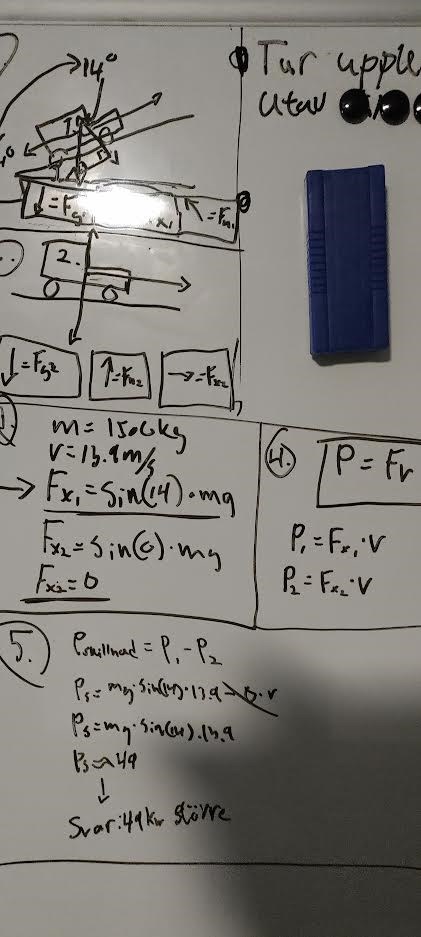 14°
Tar upple
utav
1.
= Fg
x₁
= Fn₁
2.
↓ = Fg2
↑ = Fn2
→ = Fx2
m = 1500kg
v = 13.9m/s
→ Fx₁ = Sin(14) · mg
Fx₂ = Sin(0) · mg
Fx₂ = 0
4.
P = Fv
P₁ = Fx₁ · v
P₂ = Fx₂ · v
5.
Pskillnad = P₁ - P₂
Ps = mg · sin(14) · 13.9 - 0 · v
Ps = mg · sin(14) · 13.9
Ps ≈ 49
↓
Svar: 49kw större